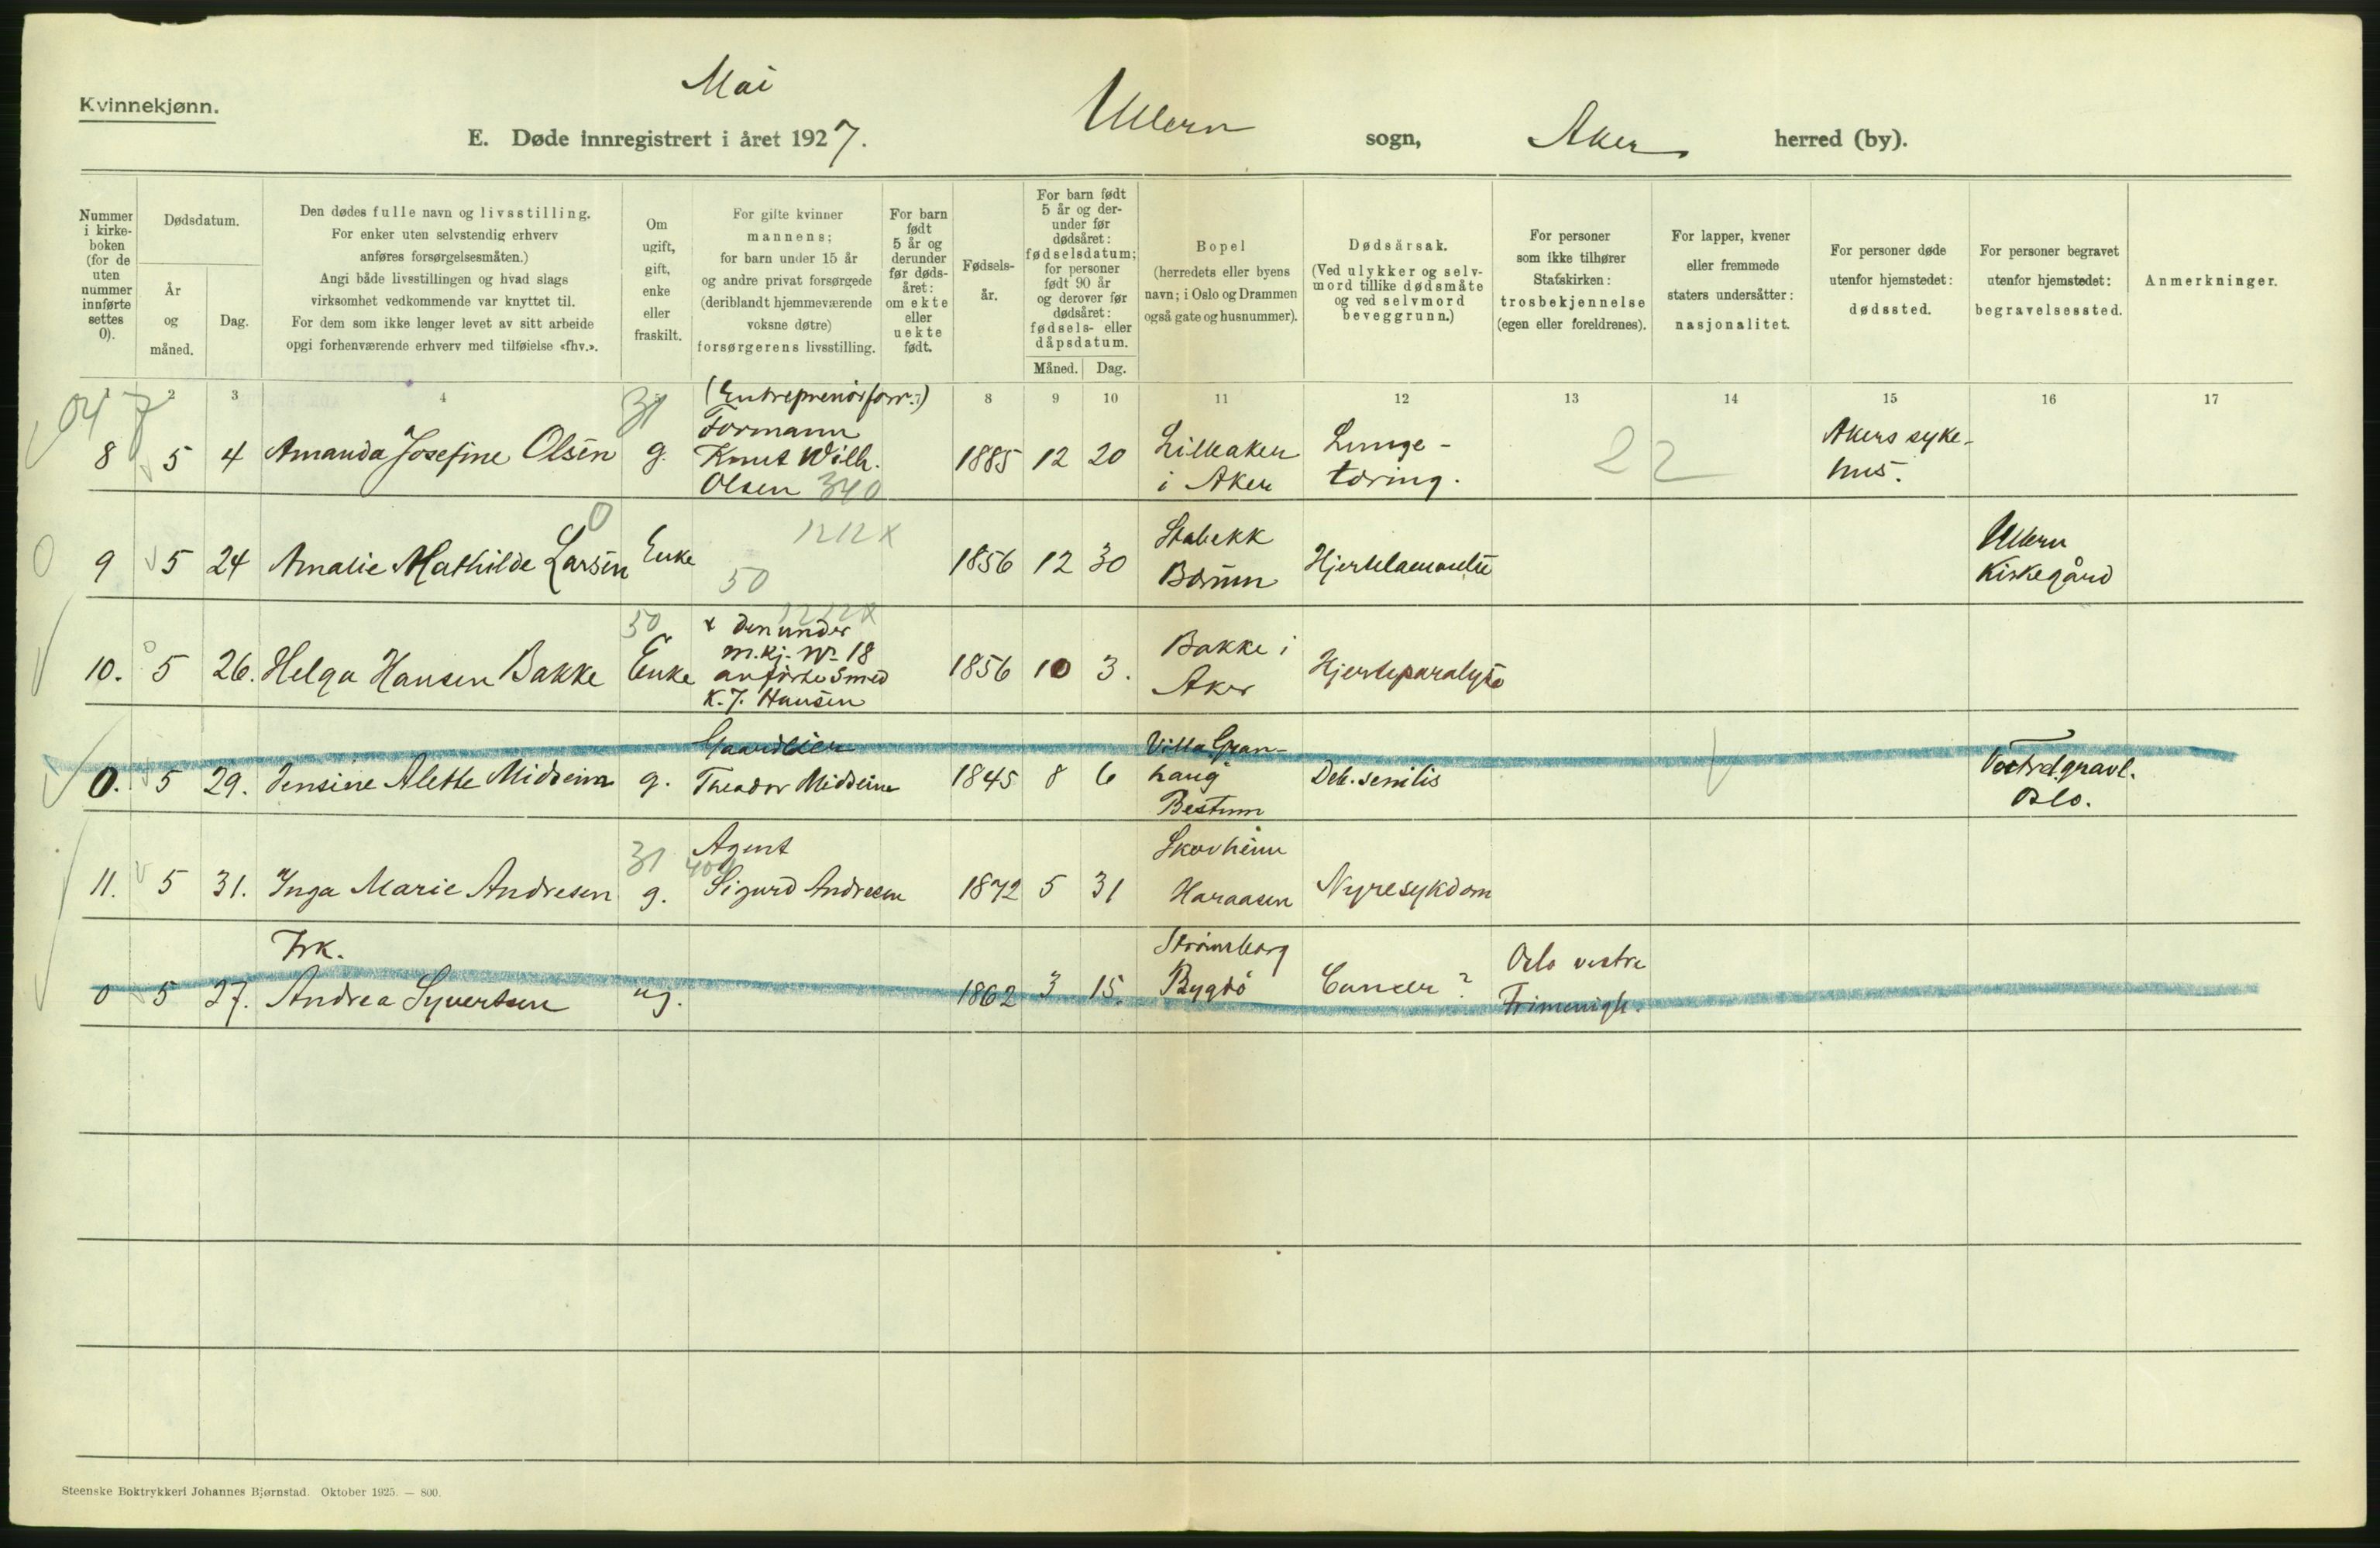 Mai
Kvinnekjønn.
E. Døde innregistrert i året 1927. Ullern sogn, Aker herred (by).
Nummer i kirke- boken (for de uten nummer innførte settes 0).
Dødsdatum.
År og måned.
Dag.
Den dødes fulle navn og livsstilling.
For enker uten selvstendig erhverv
anføres forsørgelsesmåten.)
Angi både livsstillingen og hvad slags
virksomhet vedkommende var knyttet til.
For dem som ikke lenger levet av sitt arbeide
opgi forhenværende erhverv med tilføielse «fhv.».
Om ugift, gift, enke eller fraskilt.
For gifte kvinner
mannens;
for barn under 15 år
og andre privat forsørgede
(deriblandt hjemmeværende
voksne døtre)
forsørgerens livsstilling.
For barn født 5 år og derunder før døds- året: om ekte eller uekte født.
Fødsels- år.
For barn født
5 år og der-
under før
dødsåret:
fødselsdatum;
for personer
født 90 år
og derover før
dødsåret:
fødsels- eller
dåpsdatum.
Måned. Dag.
Bopel
(herredets eller byens
navn; i Oslo og Drammen
også gate og husnummer).
Dødsårsak.
(Ved ulykker og selv-
mord tillike dødsmåte
og ved selvmord
beveggrunn.)
For personer
som ikke tilhører
Statskirken:
trosbekjennelse
(egen eller foreldrenes).
For lapper, kvener
eller fremmede
staters undersåtter:
nasjonalitet.
For personer døde
utenfor hjemstedet:
dødssted.
For personer begravet
utenfor hjemstedet:
begravelsessted.
Anmerkninger.
1 2 3 4 8 9 10 11 12 13 14 15 16 17
04 7
8 5 4 Amanda Josefine Olsen 31 g. (Entreprenørforr.) Formann Knut Wilh. Olsen 340 1885 12 20 Lilleaker i Aker Lunge- tæring. 22 Akers syke- hus.
0 9 5 24 Amalie Mathilde Larsen 0 Enke 1212X 50 1856 12 30 Stabekk Bærum Ullern Kirkegård
10. 5 26. Helga Hansen Bakke 50 Enke 1212X den under m.kj. No 18 anførte smed K. J. Hansen 1856 10 3. Bakke i Aker Hjerteparalyse
0. 5 29. Jensine Alette Midseim g. Theodor Midseim 1845 8 6 Villa Gran- haug Bestum Deb. senilis Vestre gravl. Oslo.
11. 5 31. Inga Marie Andresen 31 g. Agent 400 Sigurd Andresen 1872 5 31 Skovheim Haraasen Nyresykdom
0 5 27. Frk. Andrea Syvertsen ug. 1862 3 15. Strømsborg Bygdö Cancer? Oslo vestre Frimenigh.
Steenske Boktrykkeri Johannes Bjørnstad. Oktober 1925. — 800.